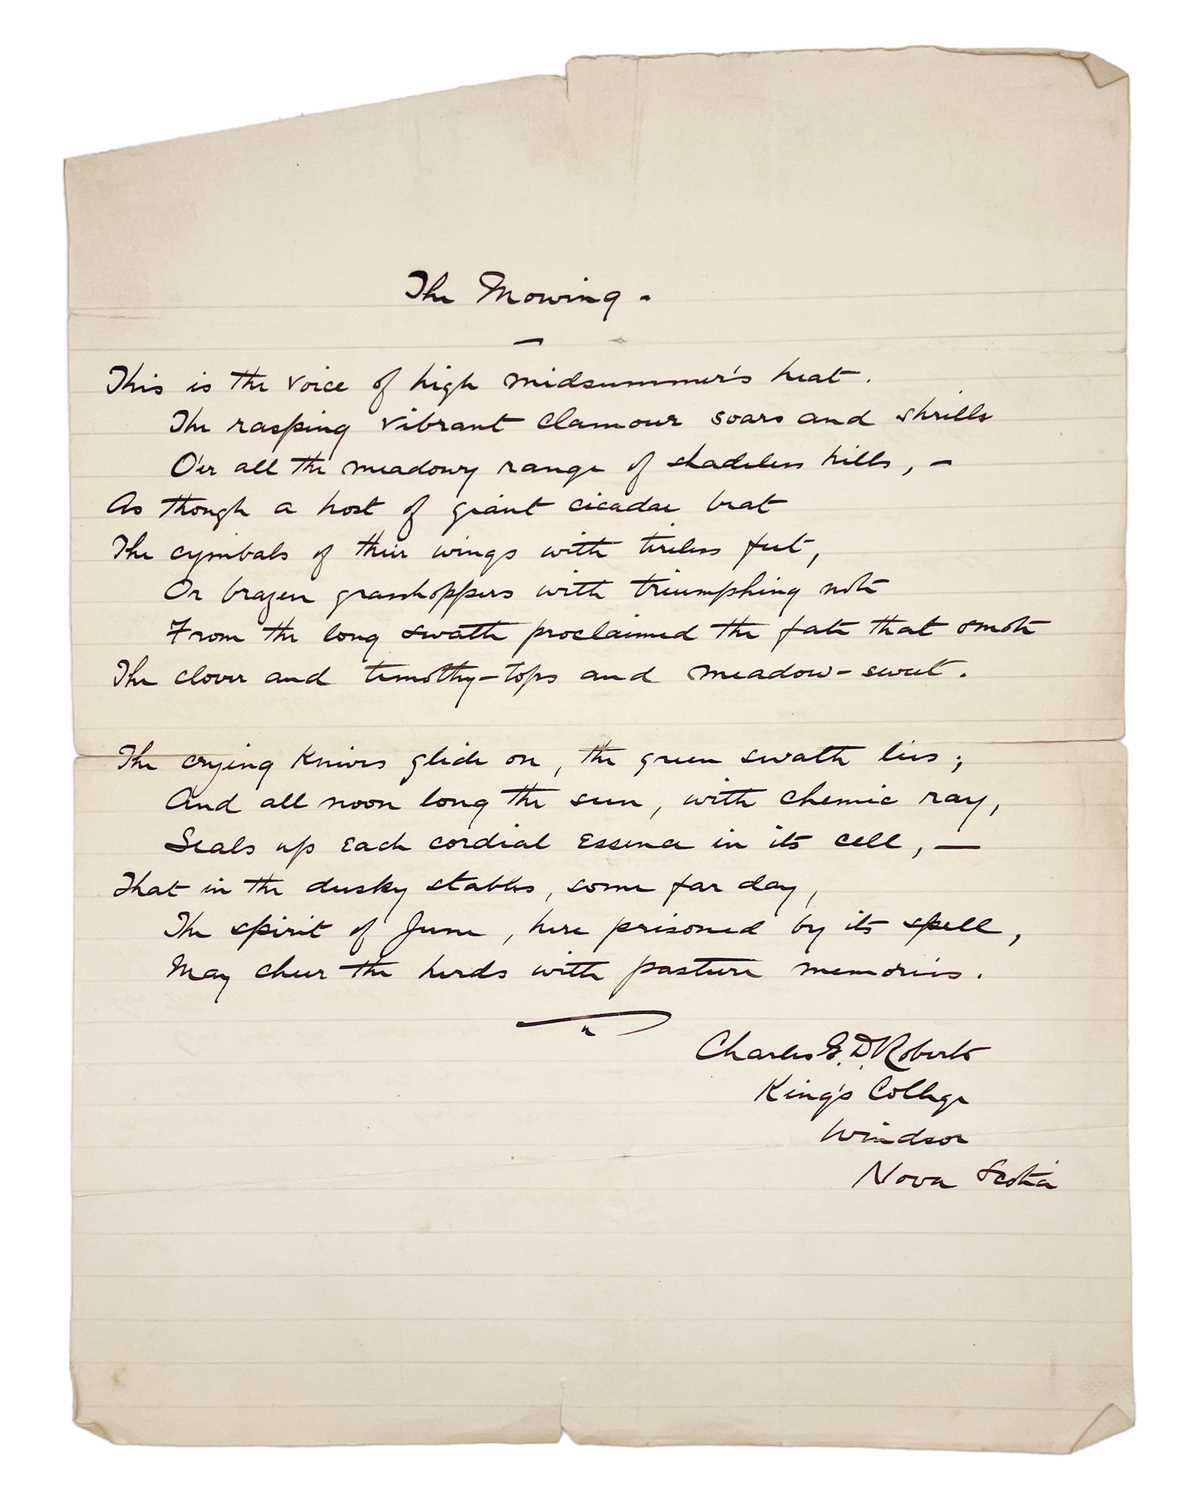 The Mowing.
This is the voice of high midsummer's heat.
The rasping vibrant clamour soars and shrills
O'er all the meadowy range of shadeless hills, –
As though a host of giant cicadae beat
The cymbals of their wings with tireless feet,
Or brazen grasshoppers with triumphing note
From the long swath proclaimed the fate that smote
The clover and timothy-tops and meadow-sweet.
The crying knives glide on, the green swath lies;
And all noon long the sun, with chemic ray,
Seals up each cordial essence in its cell, —
That in the dusky stables, some far day,
The spirit of June, here prisoned by its spell,
May cheer the herds with pasture memories.
Charles G. D. Roberts
King's College
Windsor
Nova Scotia